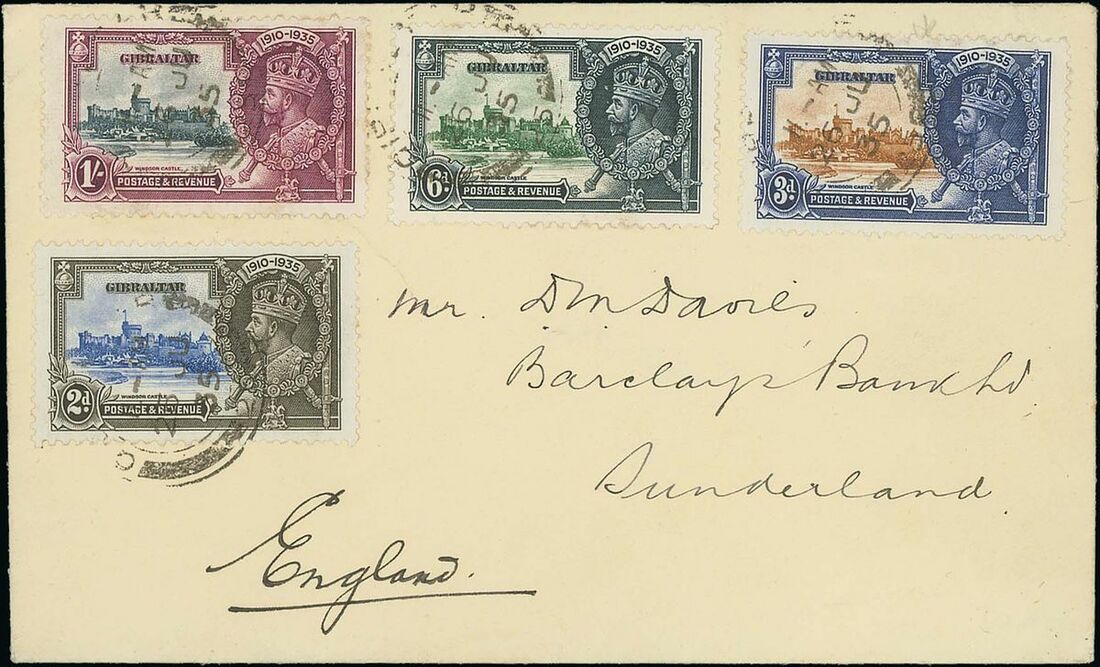 1910-1935
GIBRALTAR
WINDSOR CASTLE
1/-
POSTAGE & REVENUE
1910-1935
GIBRALTAR
WINDSOR CASTLE
6d
POSTAGE & REVENUE
1910-1935
GIBRALTAR
WINDSOR CASTLE
3d
POSTAGE & REVENUE
26 JU
35
1910-1935
GIBRALTAR
WINDSOR CASTLE
2d
POSTAGE & REVENUE
Mr. D M Davies
Barclays Bank Ltd
Sunderland
England.